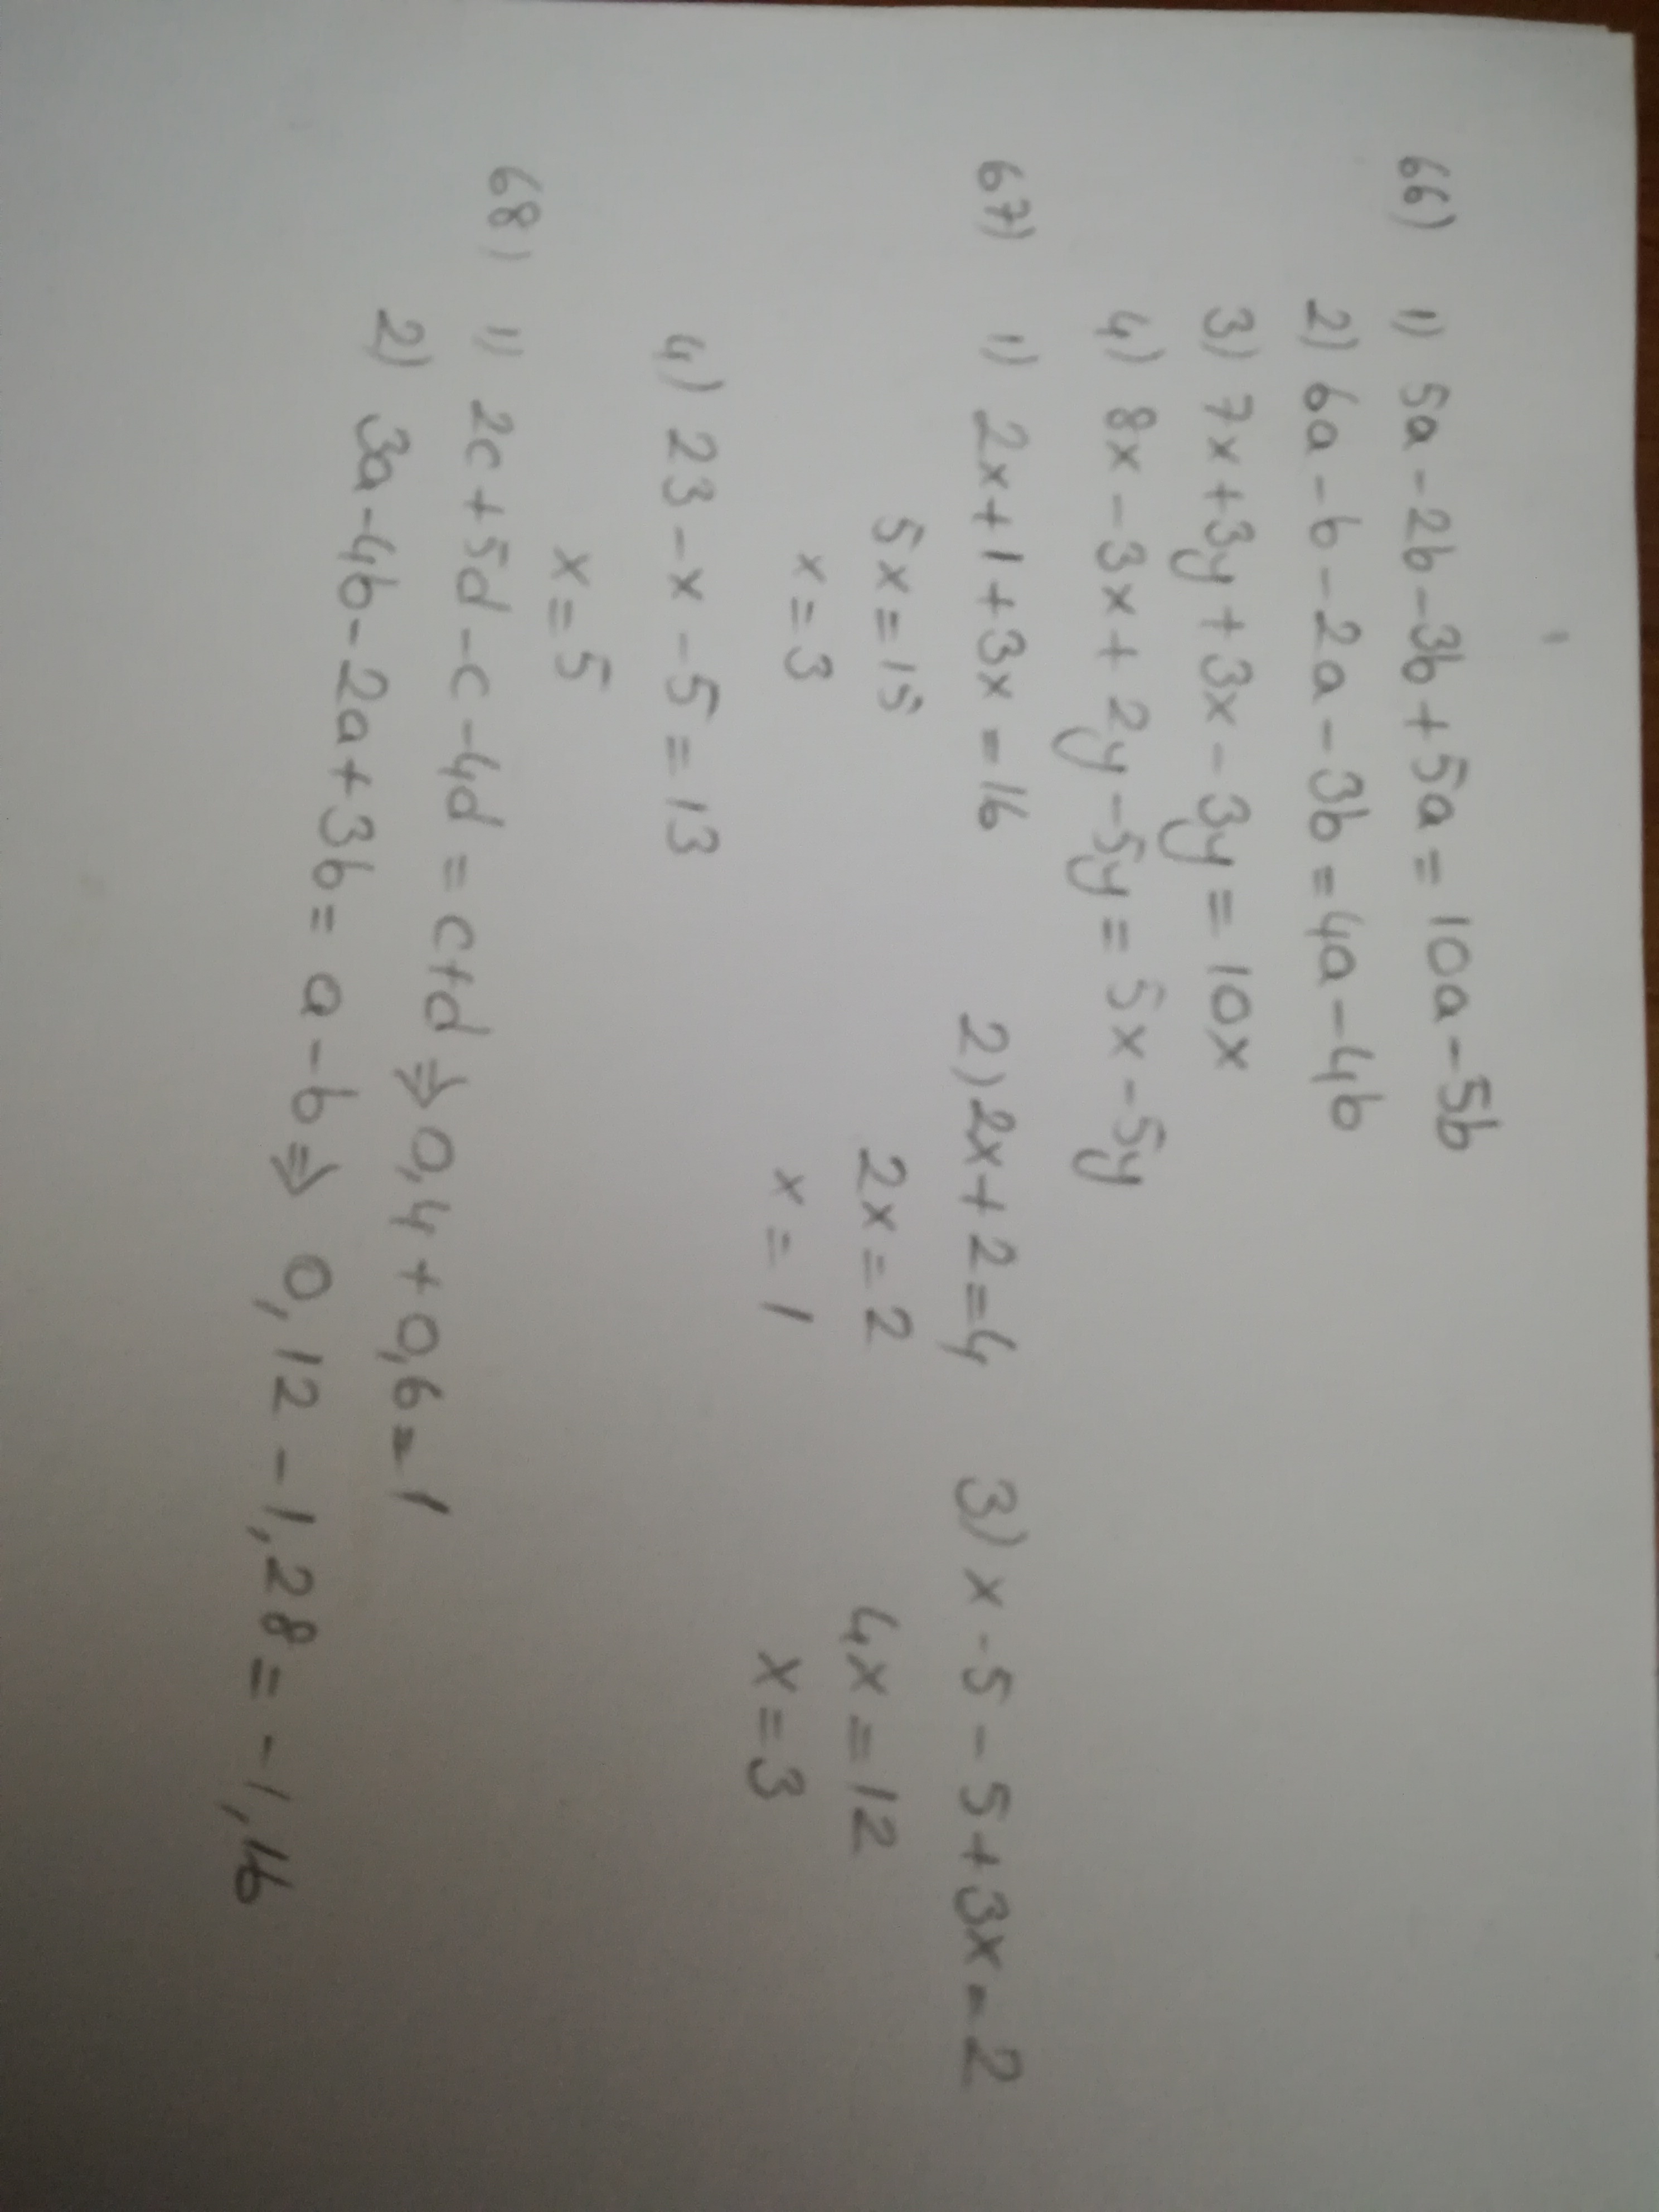 66) 1) 5a-2b-3b+5a=10a-5b
2) 6a-b-2a-3b=4a-4b
3) 7x+3y+3x-3y=10x
4) 8x-3x+2y-5y=5x-5y
67) 1) 2x+1+3x=16 2) 2x+2=4 3) x-5-5+3x=2
5x=15 2x=2 4x=12
x=3 x=1 x=3
4) 23-x-5=13
x=5
68) 1) 2c+5d-c-4d=c+d⇒0,4+0,6=1
2) 3a-4b-2a+3b=a-b⇒0,12-1,28=-1,16